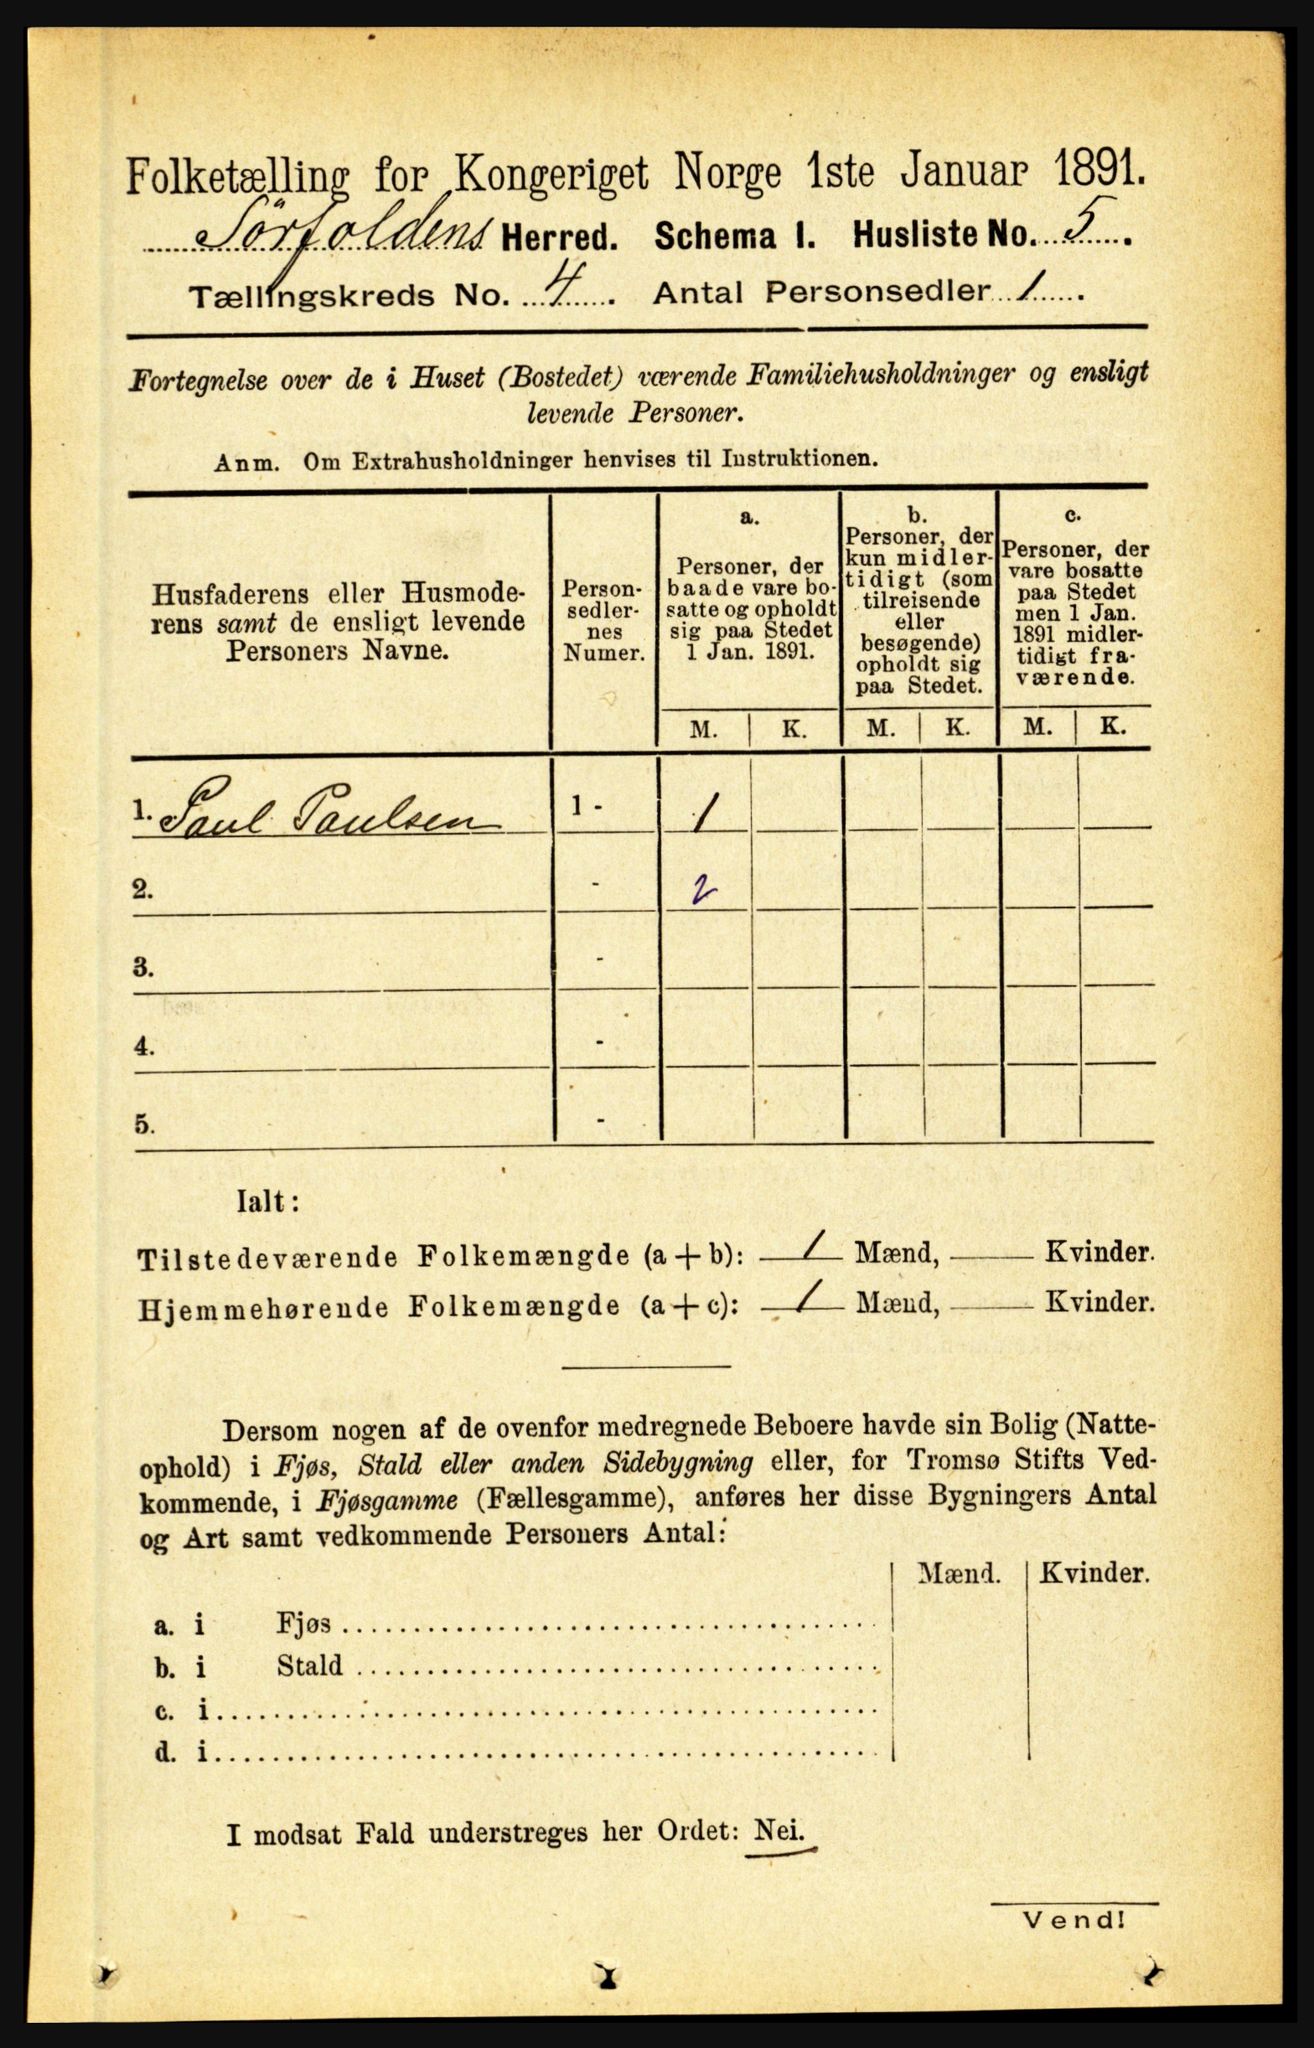 Folketælling for Kongeriget Norge 1ste Januar 1891.
Sörfoldens Herred. Schema I. Husliste No. 5.
Tællingskreds No. 4. Antal Personsedler 1.
Fortegnelse over de i Huset (Bostedet) værende Familiehusholdninger og ensligt
levende Personer.
Anm. Om Extrahusholdninger henvises til Instruktionen.
Husfaderens eller Husmode-
rens samt de ensligt levende
Personers Navne.
Person-
sedler-
nes
Numer.
a.
Personer, der
baade vare bo-
satte og opholdt
sig paa Stedet
1 Jan. 1891.
b.
Personer, der
kun midler-
tidigt (som
tilreisende
eller
besøgende)
opholdt sig
paa Stedet.
c.
Personer, der
vare bosatte
paa Stedet
men 1 Jan.
1891 midler-
tidigt fra-
værende.
M. K. M. K. M. K.
1. Paul Paulsen 1 - 1
2. - 2
3. -
4. -
5. -
Ialt:
Tilstedeværende Folkemængde (a + b): 1 Mænd, — Kvinder.
Hjemmehørende Folkemængde (a + c): 1 Mænd, — Kvinder.
Dersom nogen af de ovenfor medregnede Beboere havde sin Bolig (Natte-
ophold) i Fjøs, Stald eller anden Sidebygning eller, for Tromsø Stifts Ved-
kommende, i Fjøsgamme (Fællesgamme), anføres her disse Bygningers Antal
og Art samt vedkommende Personers Antal:
Mænd. Kvinder.
a. i Fjøs
b. i Stald
c. i
d. i
I modsat Fald understreges her Ordet: Nei.
Vend!